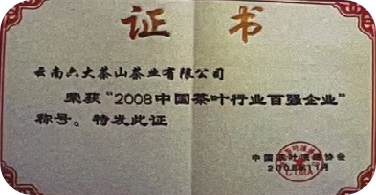 证书
云南六大茶山茶业有限公司
荣获“2008中国茶叶行业百强企业”
称号。特发此证
中国茶叶流通协会
2008年11月